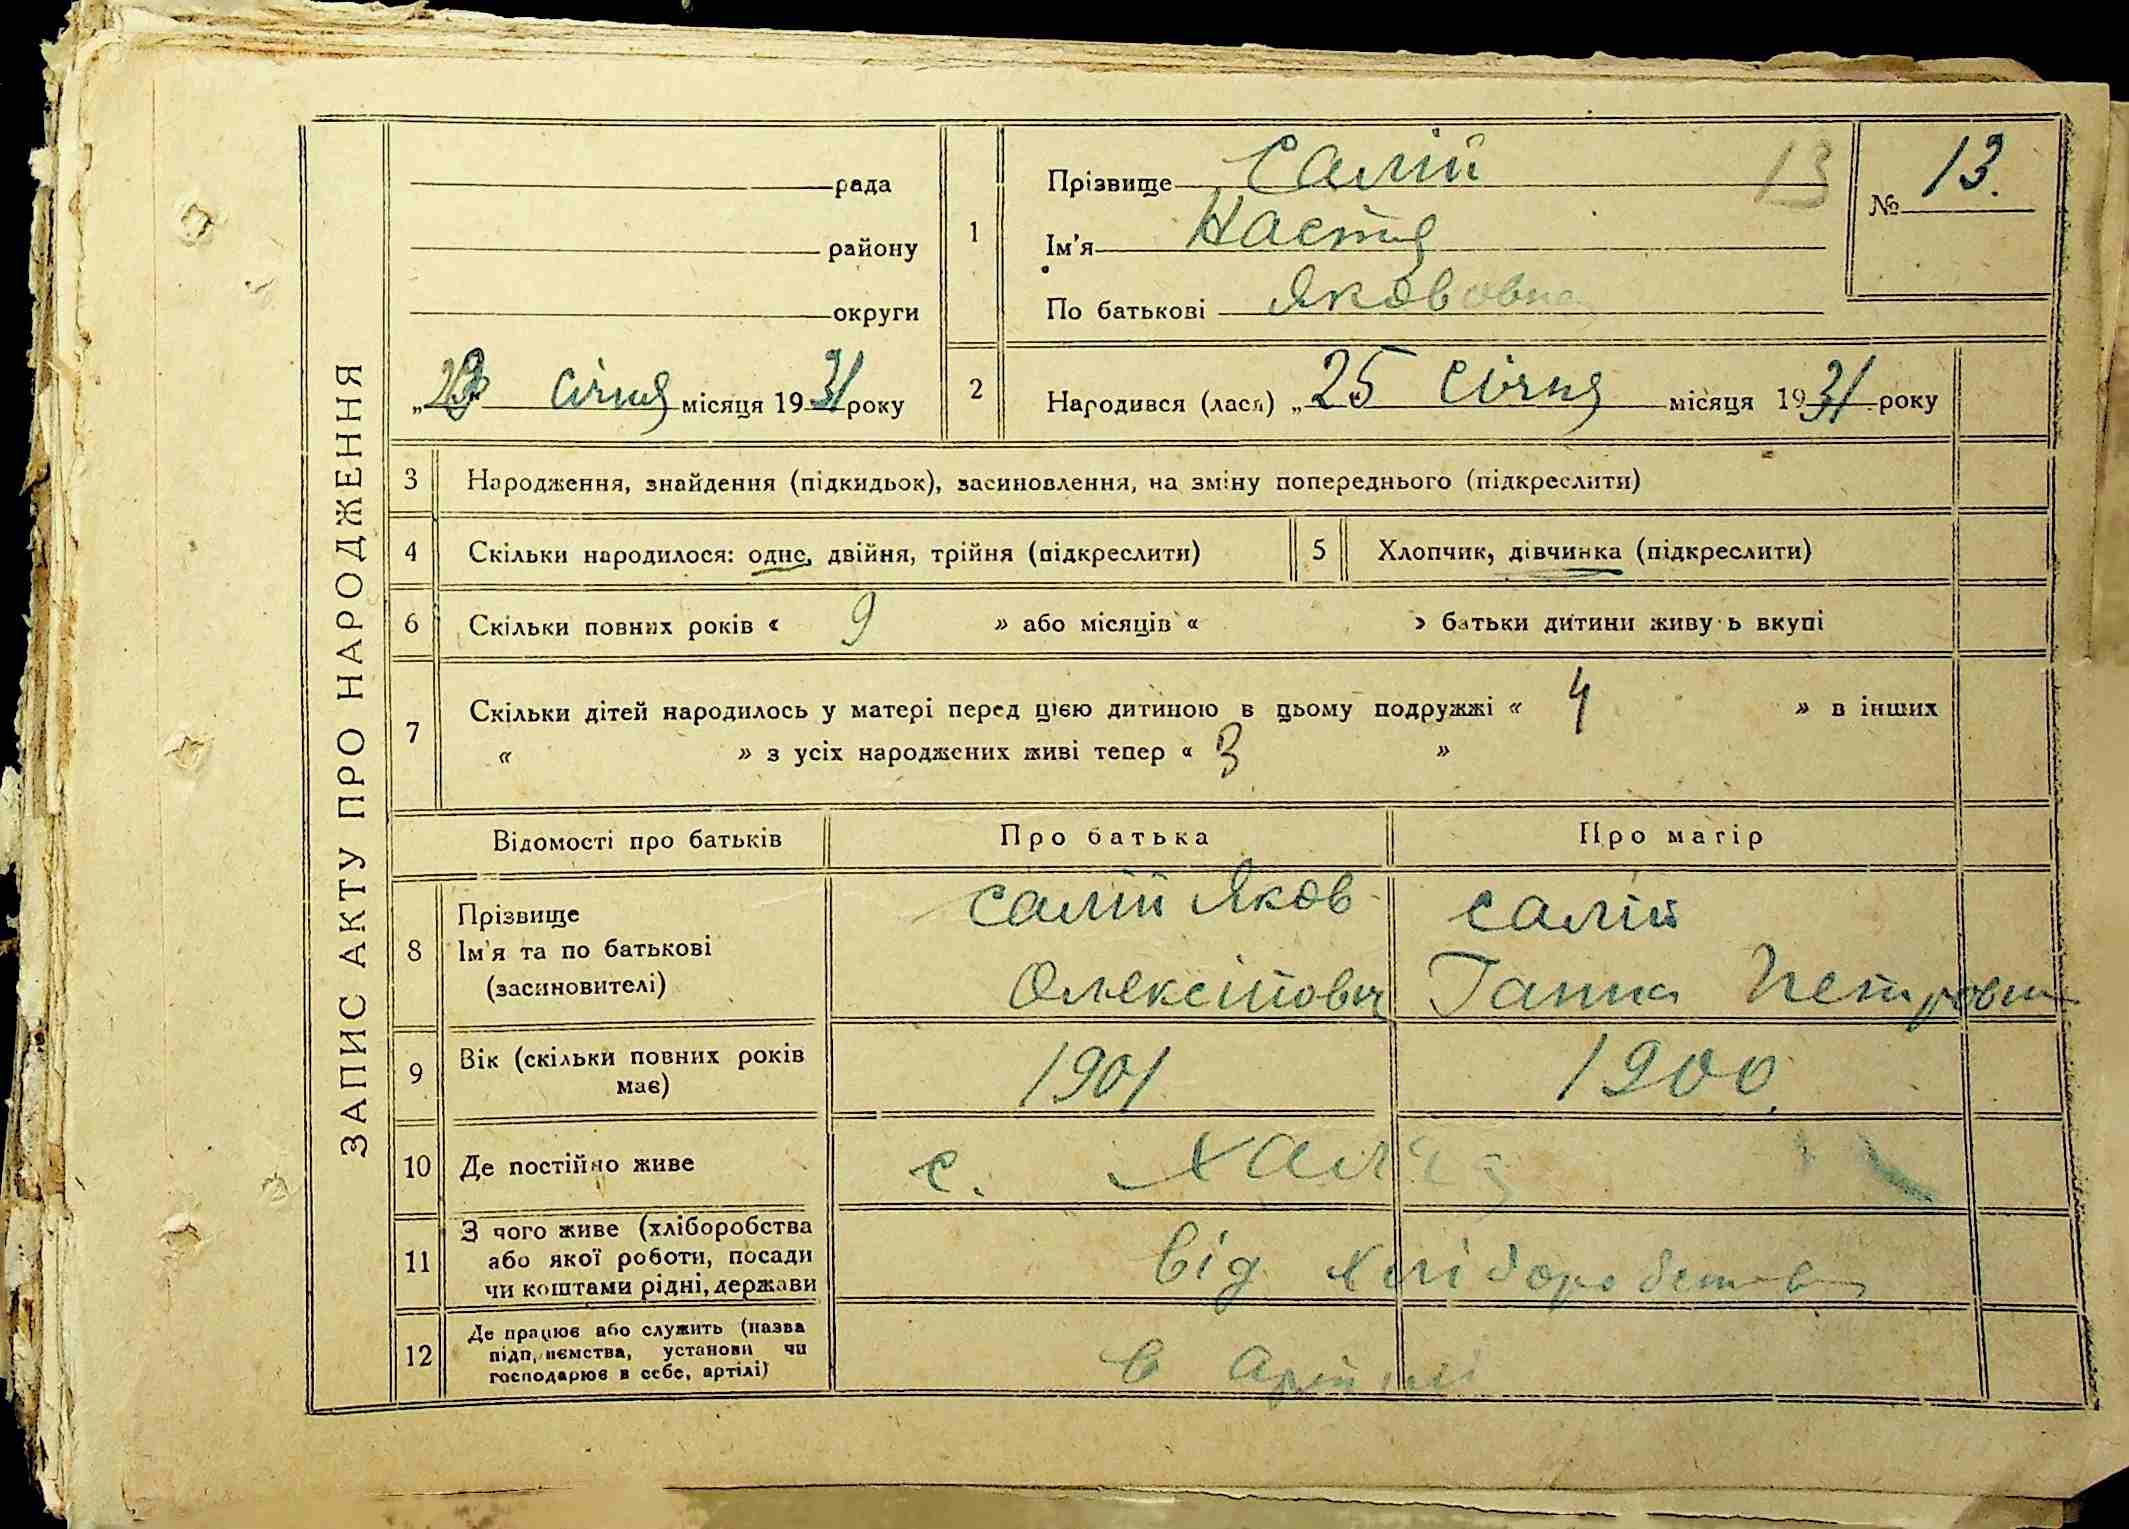 ЗАПИС АКТУ ПРО НАРОДЖЕННЯ
рада
району
округи
січня місяця 1931 року
1
Прізвище Салій 13
Ім'я Настя
По батькові Якововна
№ 13.
2
Народився (лася) „25 Січня місяця 1931 року
3 Народження, знайдення (підкидьок), засиновлення, на зміну попереднього (підкреслити)
4 Скільки народилося: одне, двійня, трійня (підкреслити)
5 Хлопчик, дівчинка (підкреслити)
6 Скільки повних років « 9 » або місяців « » батьки дитини живуть вкупі
7 Скільки дітей народилось у матері перед цією дитиною в цьому подружжі « 4 » в інших
« » з усіх народжених живі тепер « 3 »
Відомості про батьків Про батька Про матір
8
Прізвище
Ім'я та по батькові
(засиновителі)
Салій Яков
Олексійович
Салій
Ганна Петровна
9
Вік (скільки повних років
має)
1901
1900
10 Де постійно живе
с.
11
З чого живе (хліборобства
або якої роботи, посади
чи коштами рідні, держави
від хліборобства
12
Де працює або служить (назва
підприємства, установи чи
господарює в себе, артілі)
в артілі